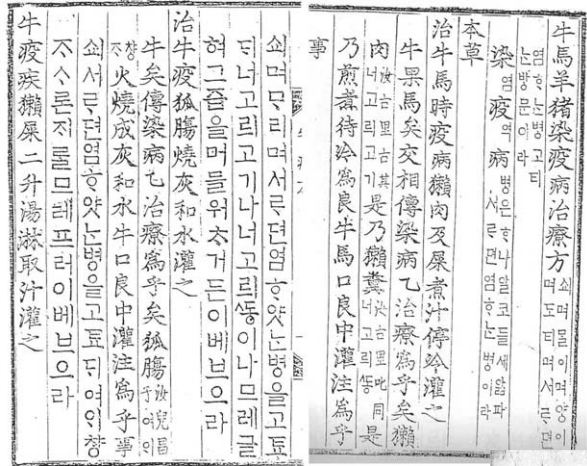 牛馬羊猪染疫病治療方 쇠며ᄆᆞᆯ이며양이며도티며서르뎐
염ᄒᆞᄂᆞᆫ병고티ᄂᆞᆫ방문이라
染염疫역病병은ᄒᆞ나알코둘세앓파서르뎐염ᄒᆞᄂᆞᆫ병이라
本草
治牛馬時疫病獺肉及屎煮汁停冷灌之
牛果馬矣交相傳染病乙治療爲乎矣獺
肉汝古里古其너고릐고기是乃獺糞汝古里叱同너고릐ᄯᅩᇰ是
乃煎煮待冷爲良牛馬口良中灌注爲乎
事
쇠며ᄆᆞ리며서르뎐염ᄒᆞ얏ᄂᆞᆫ병을고툐
ᄃᆡ너고릐고기나너고릐ᄯᅩᇰ이나므레글
혀그즙을머믈워ᄎᆞ거든이베브으라
治牛疫狐膓燒灰和水灌之
牛矣傳染病乙治療爲乎矣狐膓汝兒昌
火燒成灰和水牛口良中灌注爲乎事
쇠서르뎐염ᄒᆞ얏ᄂᆞᆫ병을고툐ᄃᆡ여ᅀᆞ챵
ᄌᆞᅀᆞ론ᄌᆡᄅᆞᆯ므레프러이베브으라
牛疫疾獺屎二升湯淋取汁灌之